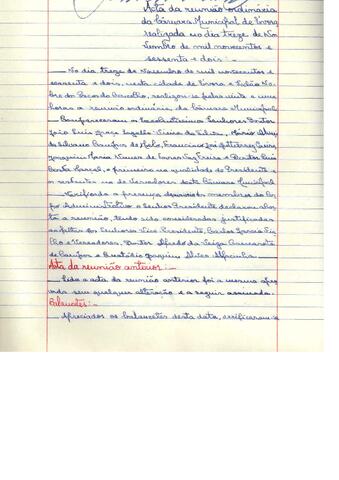 Acta da reunião ordinária
da Câmara Municipal de Évora
realizada no dia treze de No
vembro de mil novecentos e
sessenta e dois:-
No dia treze de Novembro de mil novecentos e
sessenta e dois, nesta cidade de Évora e Salão No
bre do Paços do Concelho, realizou-se pelas vinte e uma
horas a reunião ordinária, da Câmara Municipal
Compareceram os Excelentíssimos Senhores Doutor
João Luís Vieira da Silva, Mário
da Silvano Francisco José
Joaquim Maria Nunes de Freire e Doutor Luís
o primeiro na qualidade de Presidente e
os restantes na de Vereadores desta Câmara Municipal
Verificada a presença dos membros do Cor
po Administrativo o Senhor Presidente declarou aber
ta a reunião, tendo sido consideradas justificadas
as faltas dos Senhores Vice Presidente, Carlos Garcia
e Vereadores, Doutor Alfredo da Veiga
de Campos e Eustádio Joaquim Alves
Acta da reunião anterior:-
Lida a acta da reunião anterior foi a mesma apro
vada sem qualquer alteração e a seguir assinada.
Balancetes:-
Apreciados os balancetes desta data, verificaram-se